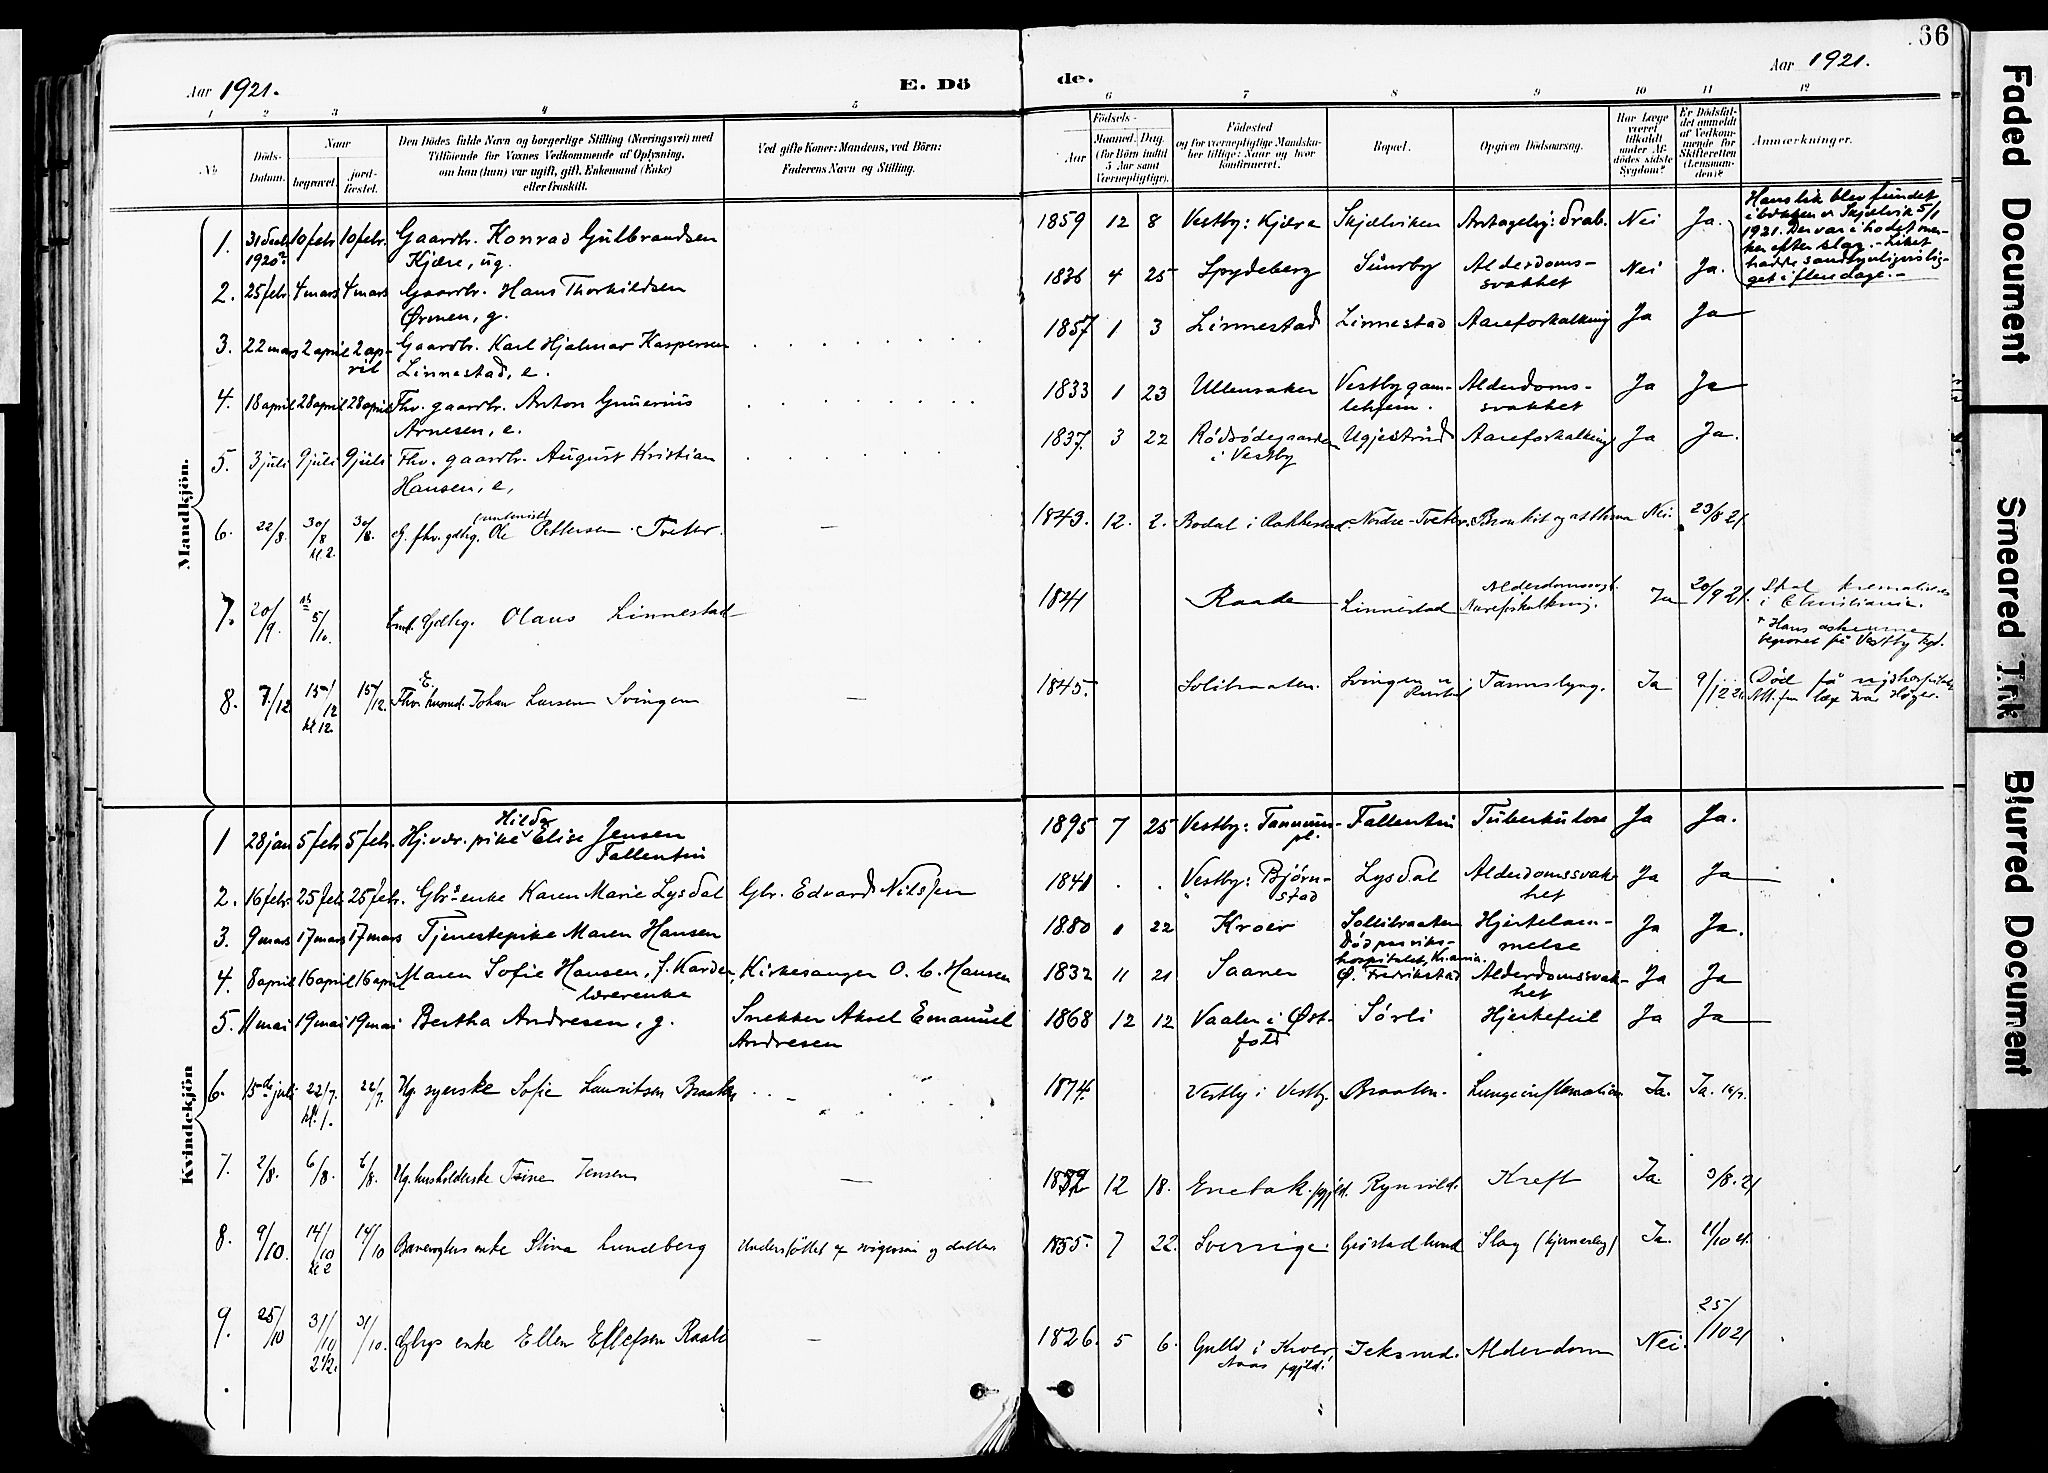 66
Aar 1921.
E. Dö
de.
Aar 1921.
1 2 3 4 5 6 7 8 9 10 11 12
No.
Döds-
Datum.
Naar
begravet.
jord-
fæstet.
Den Dödes fulde Navn og borgerlige Stilling (Næringsvei) med
Tilföiende for Voxnes Vedkommende af Oplysning,
om han (hun) var ugift, gift, Enkemand (Enke)
eller fraskilt.
Ved gifte Koner: Mandens, ved Börn:
Faderens Navn og Stilling.
Födsels-
Aar
Maaned. Dag.
(for Börn indtil
5 Aar samt
Værnepligtige).
Födested
og for værnepligtige Mandska-
ber tillige: Naar og hvor
konfirmeret.
Bopæl.
Opgiven Dödsaarsag.
Har Læge
været
tilkaldt
under Af-
dödes sidste
Sygdom?
Er Dödsfal-
det anmeldt
af Vedkom-
mende for
Skifteretten
(Lensman-
den)?
Anmærkninger.
Mandkjön.
1. 31 Desbr 1920? 10 febr 10 febr. Gaardbr. Konrad Gulbrandsen
Kjære, ug.
1859 12 8 Vestby: Kjære Skjælviken Antagelig: Drab. Nei Ja.
Hans lik blev fundet
i bækken v. Skjælvik 5/1
1921. Der var i hodet mer-
ker efter slag. - Liket
hadde sandsynligvis lig-
get i flere dage. -
2. 25 febr 4 mars 4 mars Gaardbr. Hans Thorkildsen
Ørmen, g.
1836 4 25 Spydeberg Sundby Alderdoms-
svakhet Nei Ja.
3. 22 mars 2 april 2 ap-
ril Gaardbr. Karl Hjalmar Kaspersen
Linnestad, e.
1857 1 3 Linnestad Linnestad Aareforkalkning Ja Ja
4. 18 april 28 april 28 april Fhv. gaardbr. Anton Gunerius
Arnesen, e.
1833 1 23 Ullensaker Vestby gam-
lehjem. Alderdoms-
svakhet Ja Ja
5. 3 juli 9 juli 9 juli Fhv. gaardbr. August Kristian
Hansen, e,
1837. 3 22 Rødsødegaarden
i Vestby Ugjestrud Aareforkalkning Ja Ja.
6. 22/8. 30/8 kl 2. 30/8. G. fhv. gdbg. Ole Pettersen Tveter. —
1843. 12. 2. Bodal i Rakkestad. Nordre-Tveter. Bronkit og asthma Nei. 23/8 21
7. 20/9. 5/10. Enk. Gdbg. Olaus Linnestad
1841 Raade Linnestad Alderdomssvagh.
Aareforkalkning. Ja 20/9 21.
Skal kremeres
i Christiania.
* Hans askeurne
begravet på Vestby kgd.
8. 7/12 15/12 kl 12. 15/12. E.
Fhv. husmd. Johan Larsen Svingen —
1845. Solibraaten. Svingen Tarmslyng. Ja 9/12 21.
Død på rigshospitalet
Att. fra læge Ivar Høgh.
Kvindekjön
1 28 jan 5 febr 5 febr. Hj. vær. pike Hilda Elise Jensen
Fallentin
1895 7 25 Vestby: Tannum-
pl. Fallentin Tuberkulose Ja Ja.
2. 16 febr. 25 feb 25 febr. Gbrs-enke Karen Marie Lysdal Gbr. Edvard Nilssen
1841 . . Vestby: Bjørn-
stad Lysdal Alderdomssvak-
het Ja Ja
3. 9 mars 17 mars 17 mars Tjenestepike Maren Hansen
1880 1 22 Kroer Sollibraaten
Død paa riks-
hospitalet, Kr.ania. Hjertelam-
melse Ja Ja.
4. 8 april 16 april 16 april Maren Sofie Hansen, f. Karder,
lærerenke Kirkesanger O. C. Hansen
1832 11 21 Saaner Ø. Fredrikstad Alderdomssvak-
het Ja Ja
5. 11 mai 19 mai 19 mai Bertha Andresen, g. Snekker Aksel Emanuel
Andresen
1868 12 12 Vaaler i Øst-
fold Sørli Hjertefeil Ja Ja
6. 15de juli 22/7. kl. 1. 22/7. Ug. syerske Sofie Lauritsen Braaten
1874. Vestby i Vestby. Braaten. Lungeinflamation Ja. Ja. 16/7.
7. 2/8. 6/8. 6/8. Ug. husholderske Trine Jensen —
1882 12 18. Enebak. pgjld. Rynvild. Kreft Ja. 3/8. 21
8. 9/10. 14/10 kl 2 14/10 Banevogters enke Stina Lundberg Understøttet af svigersøn og datter
1855. 7 22. Sverrige. Grøstadlund Slag (hjerneslag) Ja. 11/10 21.
9. 25/10 31/10 2 1/2. 31/10. Gbrgs enke Ellen Ellefsen —
1826. 5 6. Gulld i Kroer,
Aaas pgjld. Jeksrud. Alderdom Nei. 25/10 21
Faded Document
Smeared Ink
Blurred Document